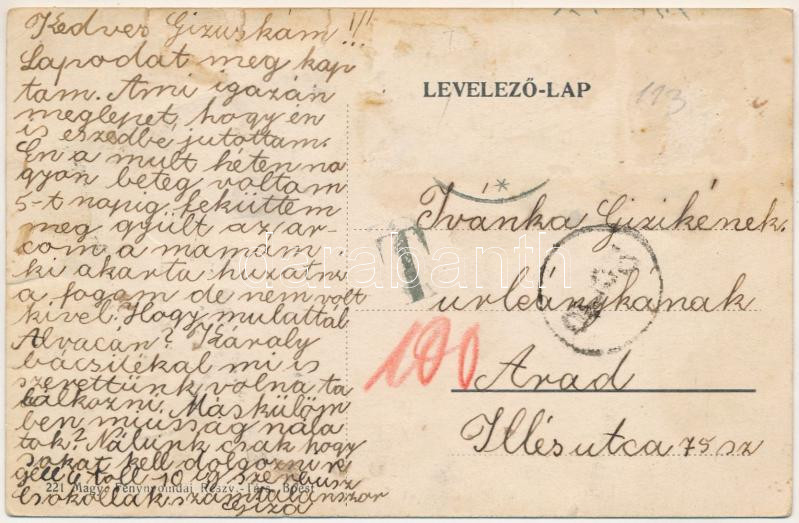 Kedves Gizuskám!!!
Lapodat meg kap
tam. Ami igazán
meglepet, hogy én
is eszedbe jutottam.
En a mult héten na
gyon beteg voltam
5-t napig feküttem
meg gyült az ar-
com a mamám
ki akarta huzatni
a fogam de nem volt
kivel? Hogy mulattál
Alvacán? Károly
bácsiékal mi is
szerettünk volna ta
lálkozni. Máskülöm
ben miusság nála
tok? Nálunk csak hogy
sokat kell dolgozni re
gell 4 töll 10 ig szerbusz
csokollak számtalanszor
Giza
221 Magy. Fénynyomdai Részv.-Társ. Bpest
LEVELEZŐ-LAP
113
Ivánka Gizikének
T
urleánykanak
100
Arad
Illésutca 75 sz
darabanth